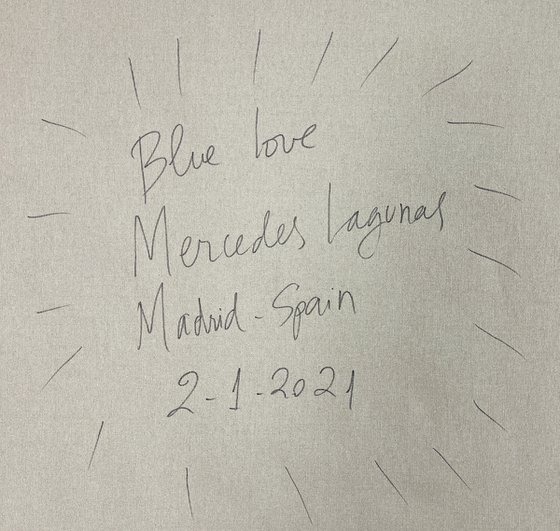 Blue love
Mercedes Lagunas
Madrid - Spain
2-1-2021